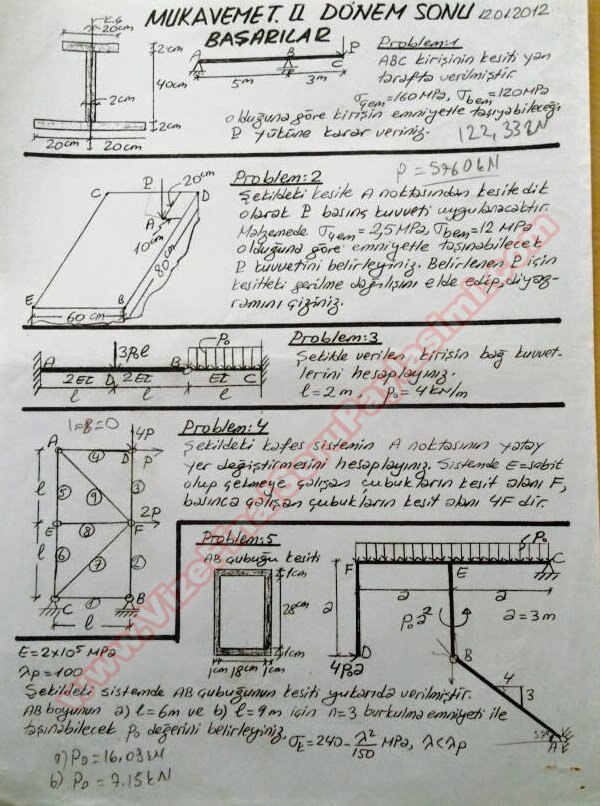 MUKAVEMET. II DÖNEM SONU 12012012
BAŞARILAR
K.G
20cm
2cm
40cm
2cm
2cm
20cm 20cm
A B C P
5m 3m
Problem:1
ABC kirişinin kesiti yan
tarafta verilmiştir.
σçem=160MPa, σbem=120MPa
olduğuna göre kirişin emniyetle taşıyabileceği
P yüküne karar veriniz. 122,33kN
P=5760kN
C P 20cm D
A
10cm
80cm
E B
60cm
Problem:2
Şekildeki kesite A noktasından kesite dik
olarak P basınç kuvveti uygulanacaktır.
Malzemede σçem=2,5MPa, σbem=12 MPa
olduğuna göre emniyetle taşınabilecek
P kuvvetini belirleyiniz. Belirlenen P için
kesitteki gerilme dağılışını elde edip, diyag-
ramını çiziniz.
A 3P₀l B P₀
2EI D 2EI EI C
l l l
Problem:3
Şekilde verilen kirişin bağ kuvvet-
lerini hesaplayınız.
l=2m P₀=4kN/m
1=8=0
A 4P
4 D P
l 5 9 3
E 8 F 2P
l 6 7 2
C 1 B
l
Problem:4
Şekildeki kafes sistemin A noktasının yatay
yer değiştirmesini hesaplayınız. Sistemde E=sabit
olup çekmeye çalışan çubukların kesit alanı F,
basınca çalışan çubukların kesit alanı 4F dir.
Problem:5
AB çubuğu kesiti
1cm
28cm
1cm
1cm 18cm 1cm
P₀
F E C
a a a
P₀a² a=3m
D
4P₀a B
4
3
A
E=2x10⁵ MPa
λp=100
Şekildeki sistemde AB çubuğunun kesiti yukarıda verilmiştir.
AB boyunun a) l=6m ve b) l=9m için n=3 burkulma emniyeti ile
taşınabilecek P₀ değerini belirleyiniz. σk=240-λ²/150 MPa, λ<λp
a) P₀=16,03kN
b) P₀=7,15kN
www.VizeFinalSoruPaylasimi.com